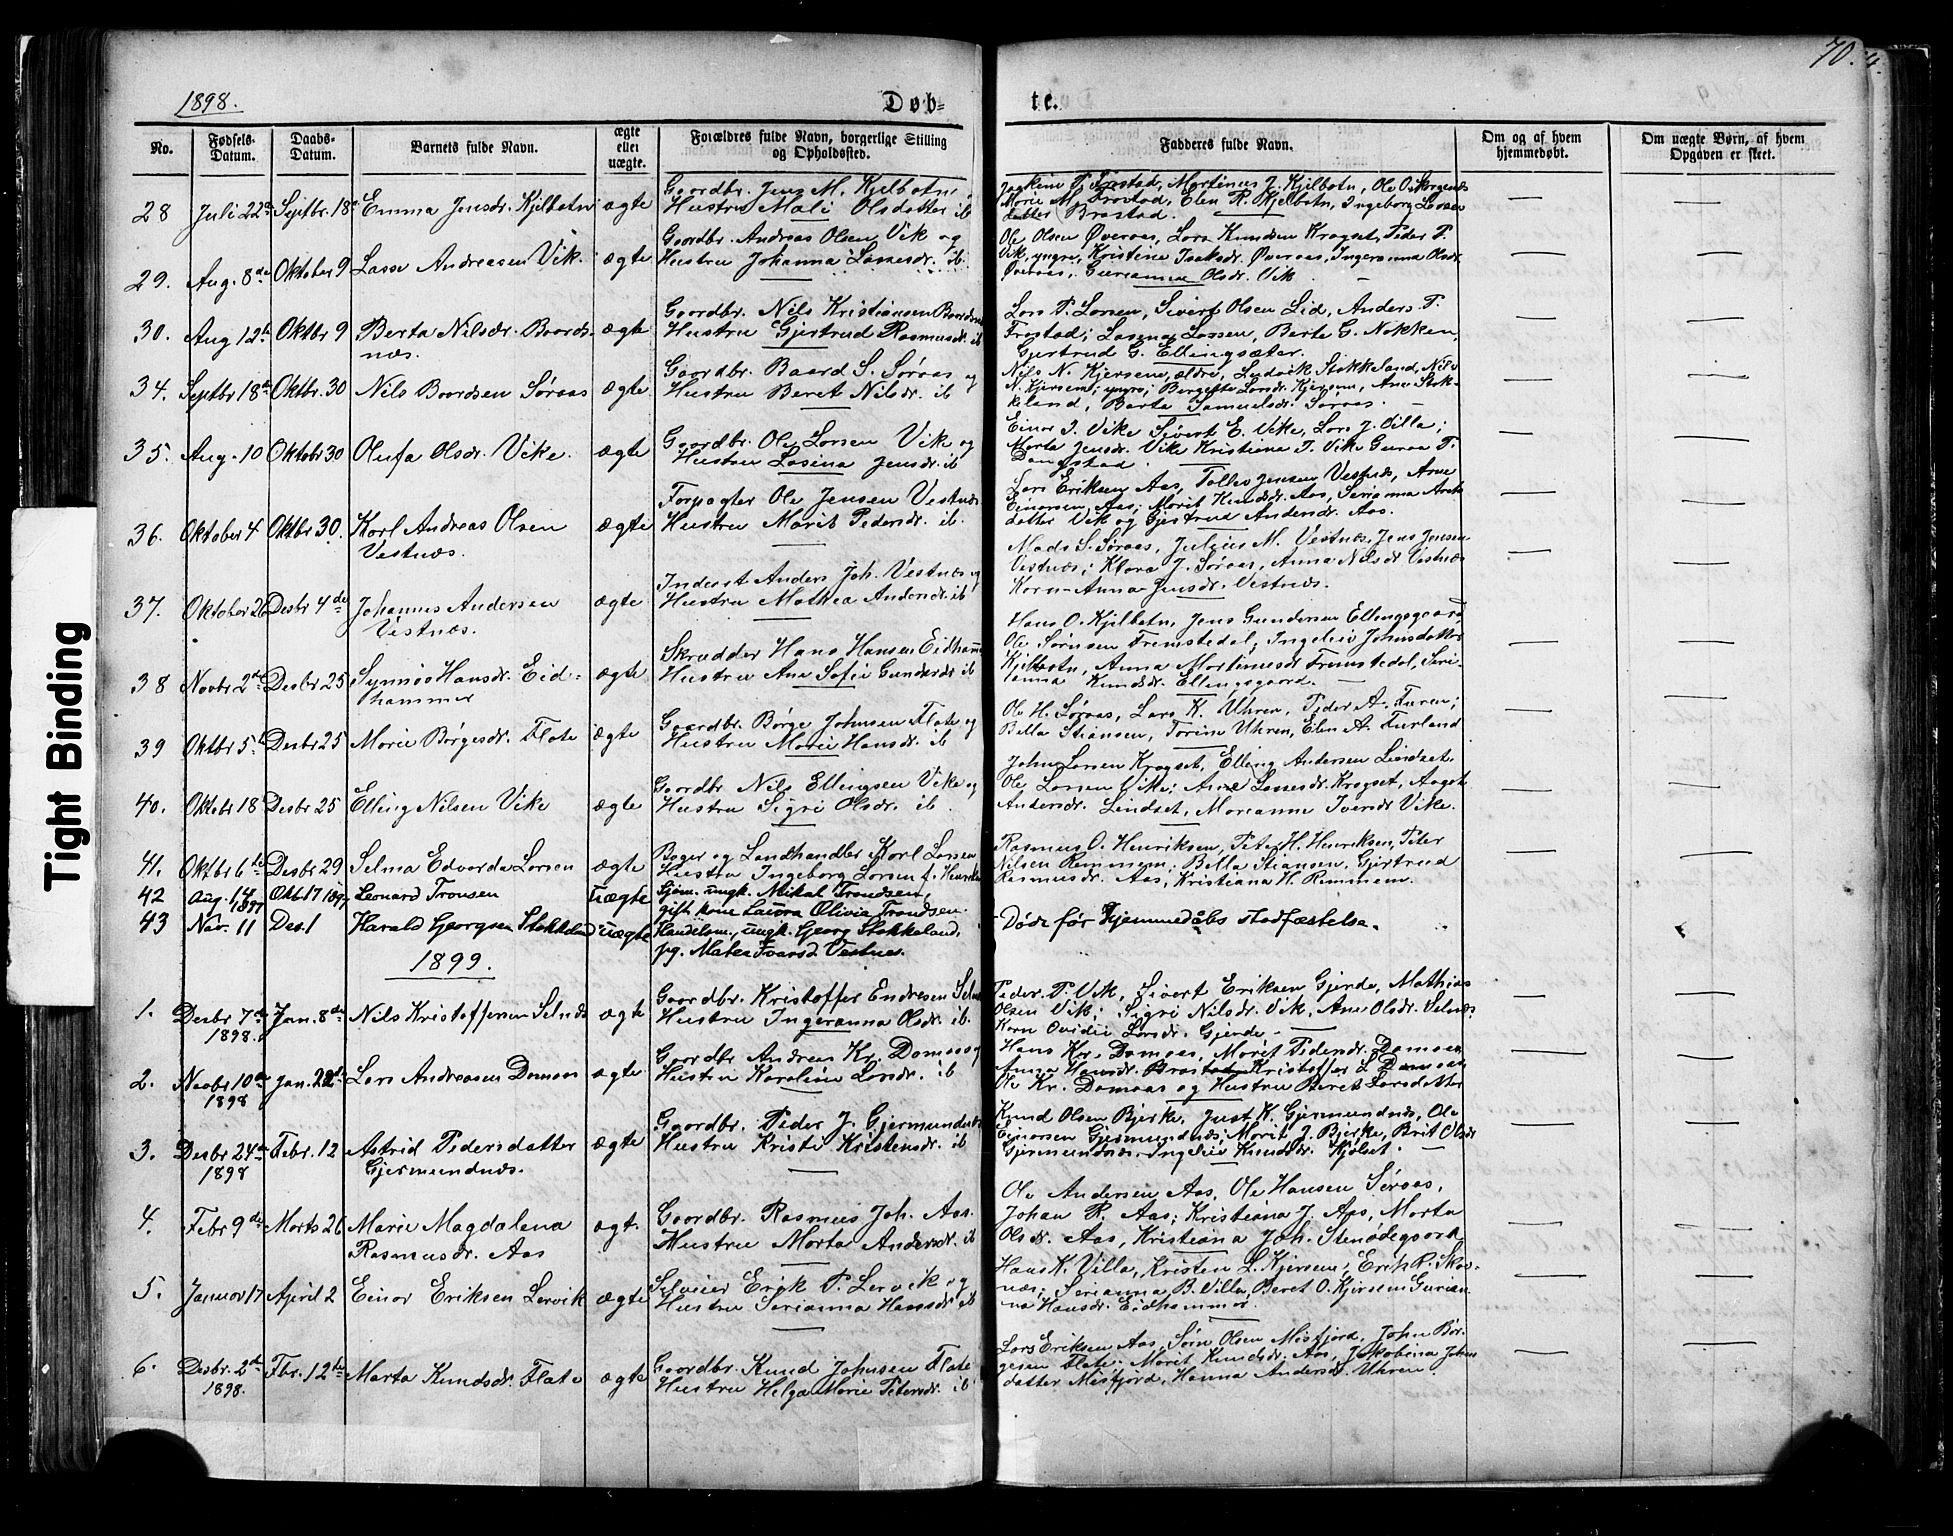 70.
1898. Døb- te.
No. Fødsels-Datum. Daabs-Datum. Barnets fulde Navn. ægte eller uægte. Forældres fulde Navn, borgerlige Stilling og Opholdssted. Fadderes fulde Navn. Om og af hvem hjemmedøbt. Om uægte Børn, af hvem Opgaven er skeet.
28 Juli 22de Septbr. 18de Emma Jensdr. Kjelbotn ægte Gaardbr. Jens M. Kjelbotn
Hustru Mali Olsdatter ib
Joakim P. Frostad, Martinus J. Kjelbotn, Ole O.
Marie M. Frostad, Elen R. Kjelbotn, Ingeborg Lasse-
datter Brastad.
29. Aug. 8de Oktober 9 Lasse Andreassen Vik. ægte Gaardbr. Andreas Olsen Vik og
Hustru Johanna Lassesdr. ib.
Ole Olsen Øveraas, Lars Knudsen Kragset, Peder P.
Vik, yngre, Kristine Isaksdr. Øveraas, Ingeranna Olsdr.
Øveraas, Gurianna Olsdr. Vik
30. Aug 12te Oktbr 9 Berta Nilsdr. Baards-
næs. ægte Gaardbr. Nils Kristiansen Baardsnæs
Hustru Gjertrud Rasmusdr. ib
Lars P. Larsen, Sivert Olsen Lid, Anders P.
Frostad; Lasina Larsen, Berte G. Nakken,
Gjertrud G. Ellingsæter.
34. Septbr 18de Oktbr. 30 Nils Baardsen Søraas ægte Gaardbr. Baard S. Søraas og
Hustru Beret Nilsdr. ib
Nils N. Kjersem, ældre, Ludvik Stokkeland, Nils
N. Kjersem, yngre; Bergette Larsdr. Kjersem, Ane Stok-
keland, Berta Samuelsdr. Søraas.
35. Aug. 10 Oktobr 30 Olufa Olsdr. Vike. ægte Gaardbr. Ole Larsen Vike og
Hustru Lasina Jensdr. ib
Einar I. Vike Sivert E. Vike, Lars J. Villa;
Marta Jensdr. Vike Kristiana T. Vike Guroa T.
Daugstad.
36. Oktober 4 Oktbr 30. Karl Andreas Olsen
Vestnæs. ægte Forpagter Ole Jensen Vestnæs
Hustru Marit Pedersdr. ib.
Lars Eriksen Aas, Tolles Jensen Vestnæs, Arne
Einarsen, Aas; Marit Knudsdr. Aas, Serianna Arnt-
datter Vik og Gjertrud Andersdr. Aas.
37. Oktober 26 Desbr 4de Johannes Andersen
Vestnæs. ægte Inderst Anders Joh. Vestnæs og
Hustru Mathea Andersdr. ib
Mads S. Søraas, Julius M. Vestnæs, Jens Jensen
Vestnæs; Klara J. Søraas, Anna Nilsdr Vestnæs
Karn-Anna Jensdr. Vestnæs.
38 Novbr 2de Desbr 25 Synnøv Hansdr. Eid-
hammer ægte Skrædder Hans Hansen Eidhammer
Hustru Ane Sofie Gundersdr ib
Hans O. Kjelbotn, Jens Gundersen Ellingsgaard,
Ole Sørnsen Fremstedal; Ingelei Johnsdatter
Kjelbotn, Anna Martinusdr Fremstedal, Seri-
anna Knudsdr. Ellingsgaard.
39 Oktbr 5te Desbr 25 Marie Børgesdr. Flate ægte Gaardbr. Børge Johnsen Flate og
Hustru Marie Hansdr. ib
Ole H. Søraas, Lars K. Uhren, Peder A. Furen;
Bella Stiansen, Torine Uhren, Elen A. Furland
40. Oktobr 18 Desbr 25 Elling Nilsen Vike ægte Gaardbr Nils Ellingsen Vike og
Hustru Sigri Olsdr. ib
John Larsen Kragset, Elling Andersen Lindset,
Ole Larsen Vike; Ane Lassesdr. Kragset, Aagot
Andersdr. Lindset, Marianne Iversdr Vike.
41. Oktbr 6te Desbr 29 Selma Edvarda Larsen ægte Bager og Landhandler Karl Larsen
Hustru Ingeborg Larsen f. Henriksen
Rasmus O. Henriksen, Peter H. Henriksen, Peter
Nilsen Remmem; Bella Stiansen, Gjertrud
Rasmusdr. Aas, Kristiana H. Remmem.
42 Aug. 14 1897 Okt 17 1897 Leonard Tronsen uægte Sjøm. ungk. Mikal Trondsen,
gift kone Laura Olivia Trondsen.
43 Nov. 11 Des. 1 Harald Georgsen Stokkeland uægte Handelsm., ungk. Georg Stokkeland,
pg. Matea Ivarsd. Vestnes.
Døde før Hjemmedåbs stadfæstelse.
1899.
1. Desbr 7de
1898. Jan. 8de Nils Kristoffersen Selnæs ægte Gaardbr. Kristoffer Endresen Selnæs
Hustru Ingeranna Olsdr. ib.
Peder P. Vik, Sivert Eriksen Gjerde, Mathias
Olsen Vik; Sigri Nilsdr. Vik, Ane Olsdr. Selnæs
Karn Ovidie Larsdr. Gjerde
2. Novbr 10de
1898 Jan. 22de Lars Andreassen Damaas ægte Gaardbr Andreas Kr. Damaas og
Hustru Karoline Larsdr. ib
Hans Kr. Damaas, Marit Pedersdr. Damaas
Anna Hansdr. Brastad Kristoffer L Damaas
Ole Kr. Damaas og Hustru Beret Larsdatter
3. Desbr 24de
1898 Febr. 12 Astrid Pedersdatter
Gjermundnæs. ægte Gaardbr. Peder J. Gjermundnæs
Hustru Kristi Kristensdr. ib
Knud Olsen Bjerke, Just K. Gjermundnæs, Ole
Einarsen Gjermundnæs; Marit J. Bjerke, Brit Olsdr
Gjermundnæs, Ingelei Knudsdr. Kjelset.
4. Febr 9de Marts 26 Marie Magdalena
Rasmusdr. Aas ægte Gaardbr. Rasmus Joh. Aas.
Hustru Marta Andersdr. ib
Ole Andersen Aas, Ole Hansen Søraas,
Johan R. Aas; Kristiana J. Aas, Marta
Olsdr. Aas, Kristiana Joh. Stenødegaard,
5. Januar 17 April 2 Einar Eriksen Lervik ægte Selveier Erik P. Lervik og
Hustru Serianna Hansdr ib
Hans K. Villa, Kristen L. Kjersem, Erik R. Skor-
næs; Serianna B. Villa, Beret O. Kjersem Gurian-
na Hansdr. Eidhammer.
6. Desbr. 2de
1898. Fbr. 12te Marta Knudsdr. Flate ægte Gaardbr. Knud Johnsen Flate
Hustru Helga Marie Petersdr. ib
Lars Eriksen Aas, Sørn Olsen Misfjord, John Bør-
gesen Flate; Marit Knudsdr. Aas, Jakobina Johans-
datter Misfjord, Hanna Andersdr. Uhren.
Tight Binding